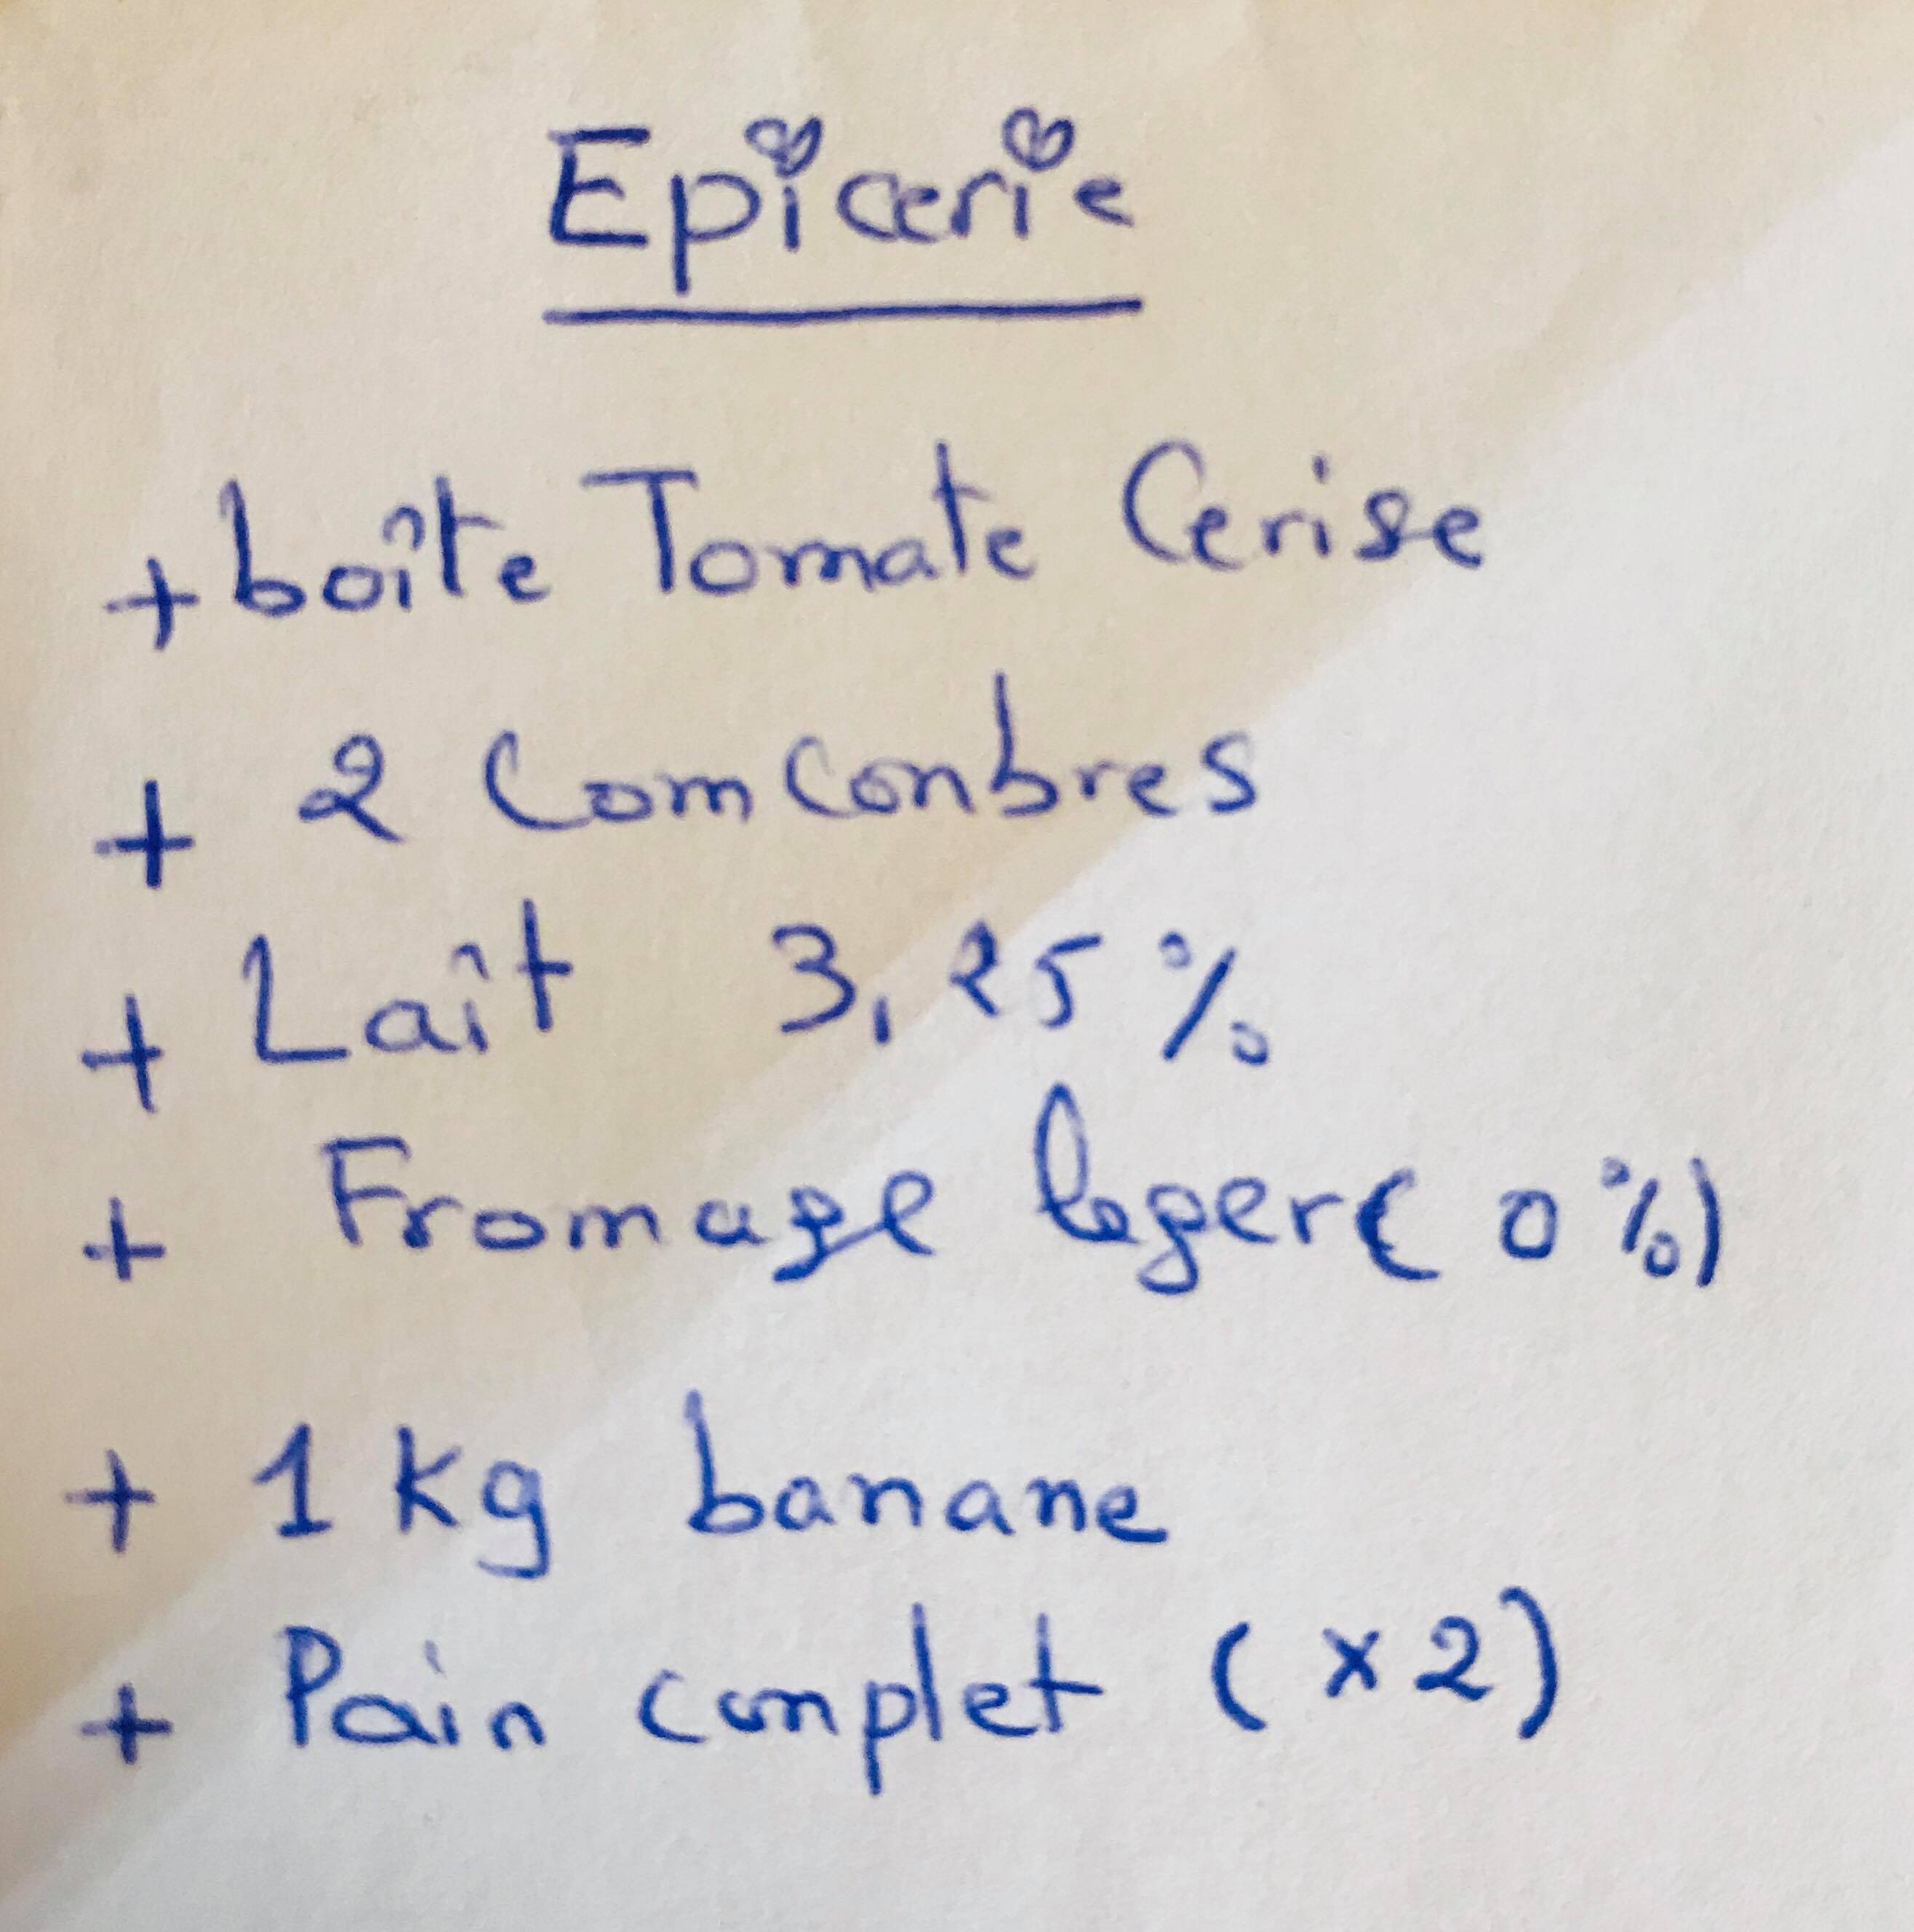 Epicerie
+ boîte Tomate Cerise
+ 2 Comconbres
+ Laît 3,25%
+ Fromage leger (0%)
+ 1 kg banane
+ Pain complet (x2)